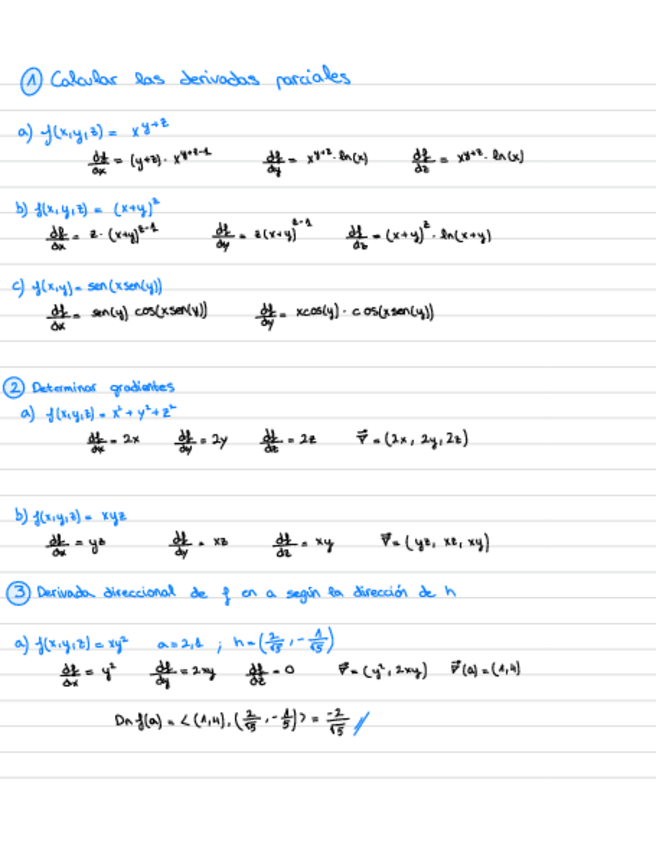 ① Calcular las derivadas parciales
a) f(x,y,z) = x^{y+z}
df/dx = (y+z) · x^{y+z-1} df/dy = x^{y+z} · ln(x) df/dz = x^{y+z} · ln(x)
b) f(x,y,z) = (x+y)^z
df/dx = z · (x+y)^{z-1} df/dy = z(x+y)^{z-1} df/dz = (x+y)^z · ln(x+y)
c) f(x,y) = sen(xsen(y))
df/dx = sen(y) cos(xsen(y)) df/dy = xcos(y) · cos(xsen(y))
② Determinar gradientes
a) f(x,y,z) = x² + y² + z²
df/dx = 2x df/dy = 2y df/dz = 2z ∇⃗ = (2x, 2y, 2z)
b) f(x,y,z) = xyz
df/dx = yz df/dy = xz df/dz = xy ∇⃗ = (yz, xz, xy)
③ Derivada direccional de f en a según la dirección de h
a) f(x,y,z) = xy² a = 2,1 ; h = (2/√5, -1/√5)
df/dx = y² df/dy = 2xy df/dz = 0 ∇⃗ = (y², 2xy) ∇⃗(a) = (1,4)
Dh f(a) = <(1,4), (2/√5, -1/5)> = -2/√5 //